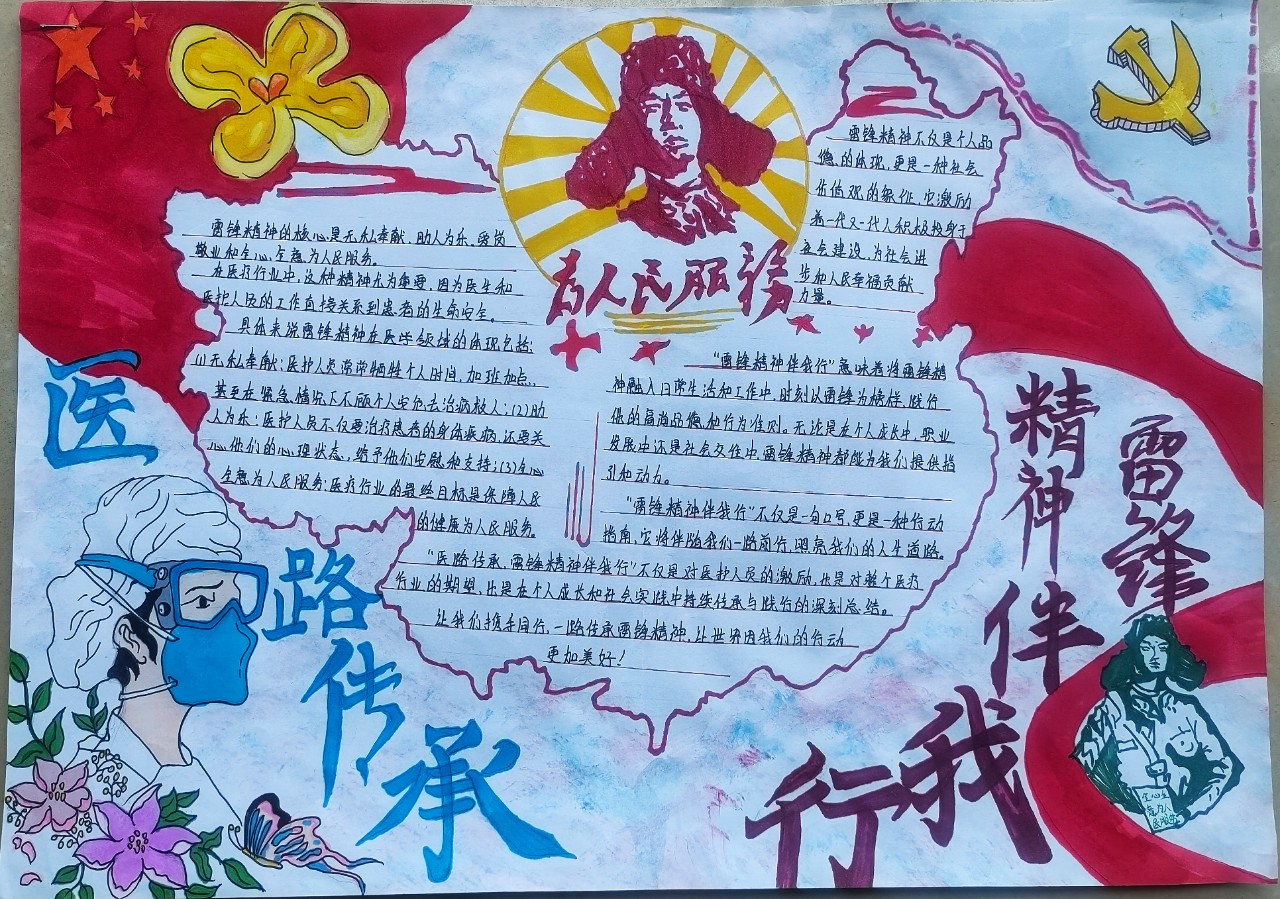 为人民服務
雷锋精神的核心是无私奉献、助人为乐、爱岗
敬业和全心全意为人民服务。
在医疗行业中，这种精神尤为重要，因为医生和
医护人员的工作直接关系到患者的生命安全。
具体来说雷锋精神在医学领域的体现包括：
(1)无私奉献：医护人员常常牺牲个人时间，加班加点，
甚至在紧急情况下不顾个人安危去治病救人；(2)助
人为乐：医护人员不仅要治疗患者的身体疾病，还要关
心他们的心理状态，给予他们安慰和支持；(3)全心
全意为人民服务：医疗行业的最终目标是保障人民
的健康为人民服务。
雷锋精神不仅是个人品
德的体现，更是一种社会
价值观的象征，它激励
着一代又一代人积极投身于
社会建设，为社会进
步和人民幸福贡献
力量。
“雷锋精神伴我行”意味着将雷锋精
神融入日常生活和工作中，时刻以雷锋为榜样，践行
他的高尚品德和行为准则。无论是在个人成长中，职业
发展中还是社会交往中，雷锋精神都能为我们提供指
引和动力。
“雷锋精神伴我行”不仅是一句口号，更是一种行动
指南，它将伴随我们一路前行，照亮我们的人生道路。
“医路传承，雷锋精神伴我行”不仅是对医护人员的激励，也是对整个医疗
行业的期望，也是在个人成长和社会实践中持续传承与践行的深刻总结。
让我们携手同行，一路传承雷锋精神，让世界因我们的行动
更加美好！
医路传承
雷锋
精神伴我行
全心全
意为人
民服务